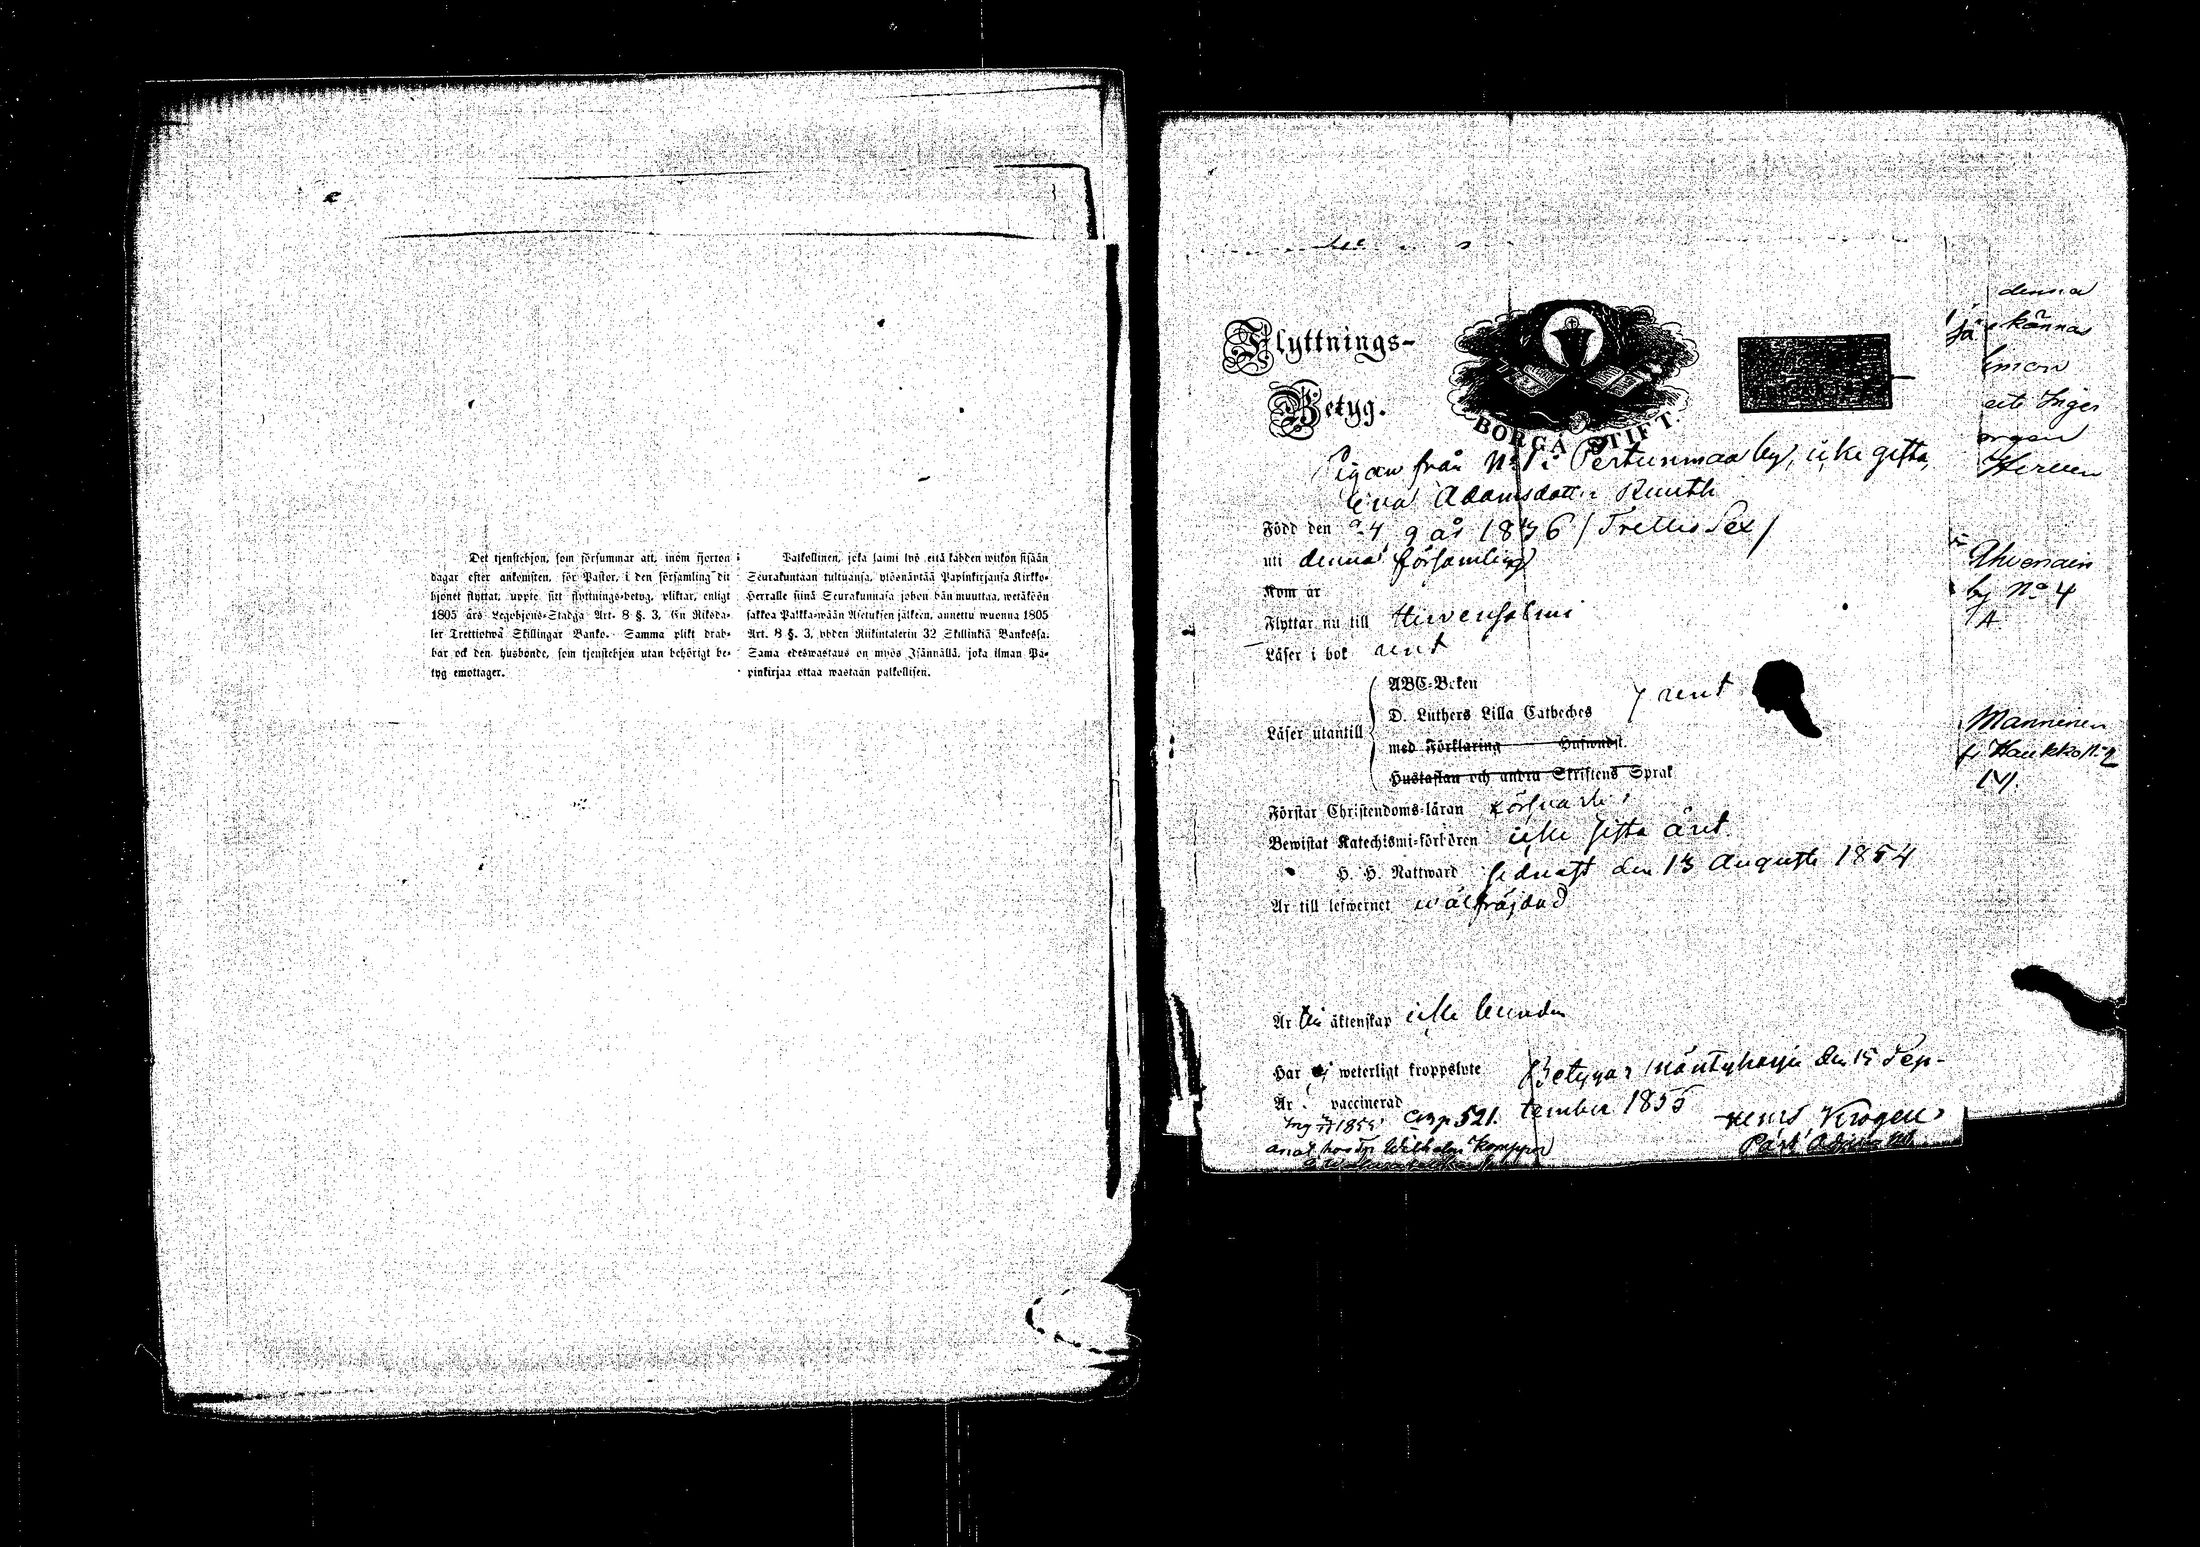 Det tjenstehjon, som försummar att, inom fjorton
dagar efter ankomsten, för Pastor, i den församling dit
hjonet flyttat, uppte sitt flyttnings-betyg, pliktar, enligt
1805 års Legohjons-Stadga Art. 8 §. 3, En Riksda-
ler Trettiotwå Skillingar Banko. Samma plikt drab-
bar ock den husbonde, som tjenstehjon utan behörigt be-
tyg emottager.
Palkollinen, joka laimi lyö että kahden wiikon sisään
Seurakuntaan tultuansa, ylösnäyttää Papinkirjansa Kirkko-
herralle siinä Seurakunnasa johon hän muuttaa, wetäköön
sakkoa Palkka-wään Asetuksen jälkeen, annettu wuonna 1805
Art. 8 §. 3, yhden Riikintalerin 32 Skillinkiä Bankossa.
Sama edeswastaus on myös Isännällä, joka ilman Pa-
pinkirjaa ottaa wastaan palkollisen.
Flyttnings-
Betyg.
BORGÅ STIFT.
Pigan från No 1 i Pertunmaa by, icke gifta,
Eva Adamsdotter Ruuth
Född den 4 9 år 1836 / Trettio Sex /
uti denna församling
Kom år
Flyttar nu till Hirvensalmi
Läser i bok rent
Läser utantill
ABC-Boken
D. Luthers Lilla Catheches
med Förklaring Husworst.
Hustaflan och andra Skriftens Språk
rent
Förstår Christendoms-läran försvarl.
Bewistat Katechismi-förhören icke sista året
H. H. Nattward sednast den 13 Augusti 1854
Är till lefwernet wälfräjdad
Är till äktenskap icke bunden
Har ej weterligt kroppslyte
Är vaccinerad
Betygar Mäntyharju den 15 Sep-
tember 1855
Henrs Krogerus
Past. Adjunct
pag. 521.
denna
kännas
Simon
Inger
Hirven
Ahvenain
by No 4
A
Manninen
fr Haukko No 2